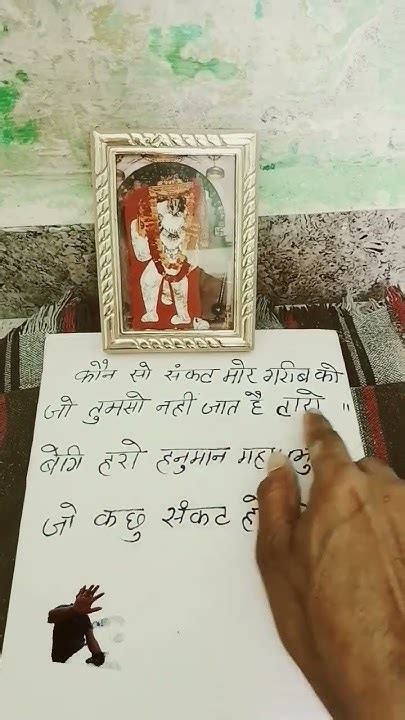 कौन सो संकट मोर गरीब को
जो तुमसो नहीं जात है टारो ॥
बेगि हरो हनुमान
जो कछु संकट